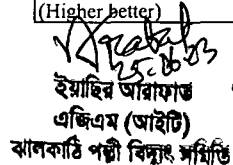 (Higher better)
২৫.০৬.২৩
ইয়াছির আরাফাত
এজিএম (আইটি)
ঝালকাঠি পল্লী বিদ্যুৎ সমিতি